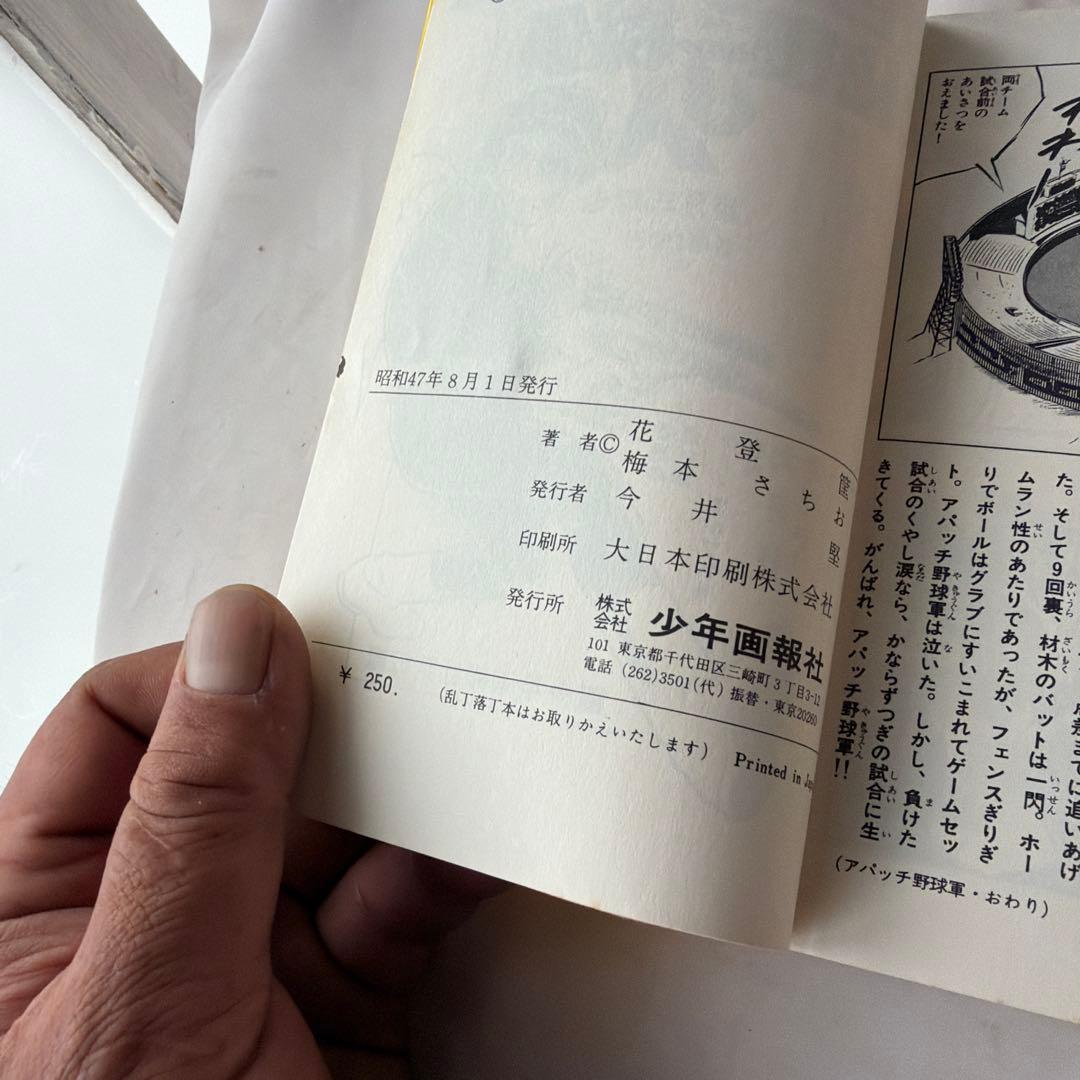 昭和47年8月1日発行
著者©花登筐
梅本さちお
発行者 今井堅
印刷所 大日本印刷株式会社
発行所 株式会社 少年画報社
101 東京都千代田区三崎町3丁目3-12
電話 (262)3501(代) 振替・東京20260
¥ 250.
(乱丁落丁本はお取りかえいたします)
Printed in
両チーム
試合前の
あいさつを
おえました!
た。そして9回裏、材木のバットは一閃。ホー
ムラン性のあたりであったが、フェンスぎりぎ
りでボールはグラブにすいこまれてゲームセッ
ト。アパッチ野球軍は泣いた。しかし、負けた
試合のくやし涙なら、かならずつぎの試合に生
きてくる。がんばれ、アパッチ野球軍!!
(アパッチ野球軍・おわり)